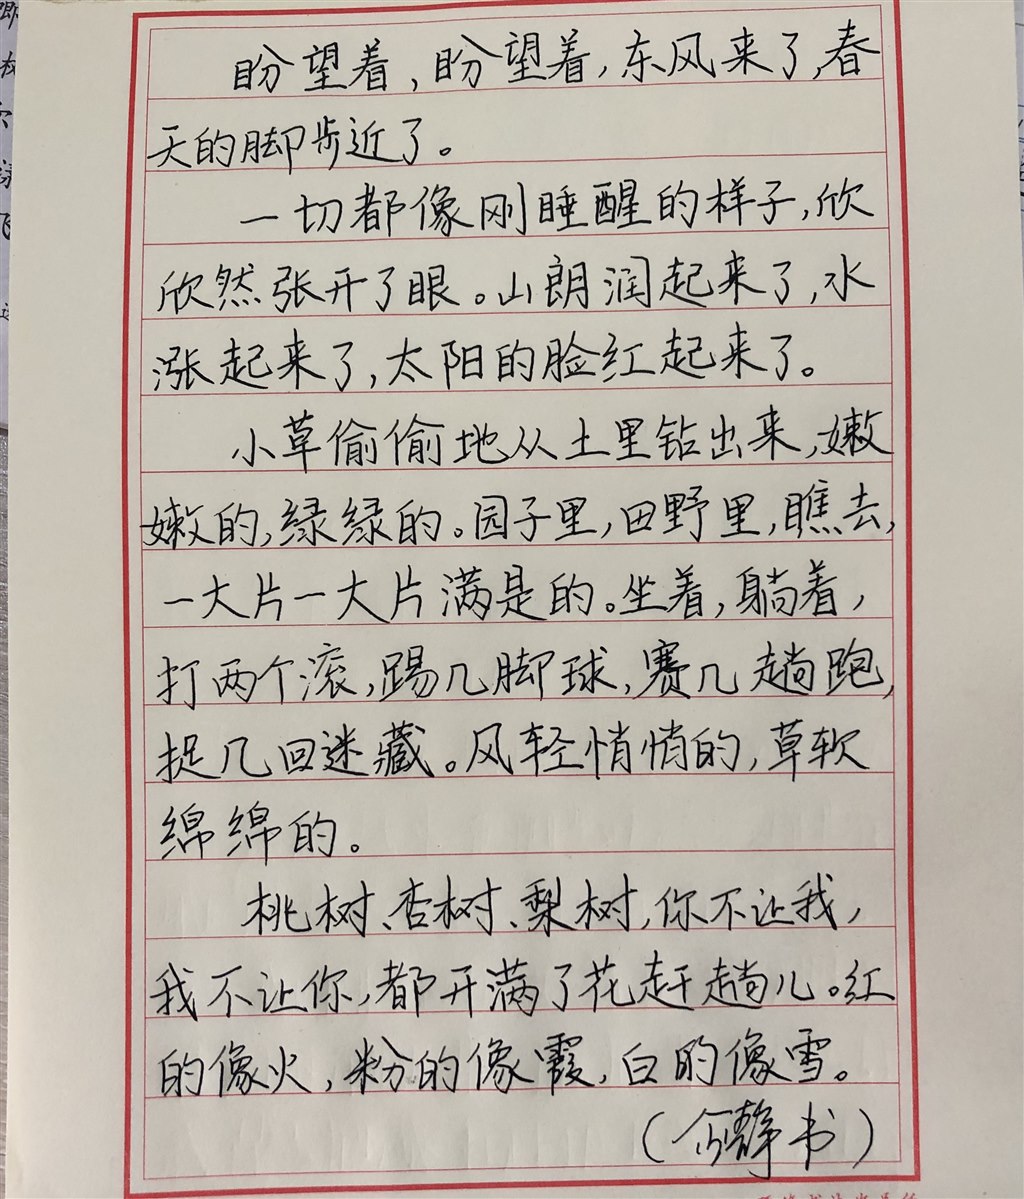 盼望着,盼望着,东风来了,春
天的脚步近了。
一切都像刚睡醒的样子,欣
欣然张开了眼。山朗润起来了,水
涨起来了,太阳的脸红起来了。
小草偷偷地从土里钻出来,嫩
嫩的,绿绿的。园子里,田野里,瞧去,
一大片一大片满是的。坐着,躺着,
打两个滚,踢几脚球,赛几趟跑,
捉几回迷藏。风轻悄悄的,草软
绵绵的。
桃树、杏树、梨树,你不让我,
我不让你,都开满了花赶趟儿。红
的像火,粉的像霞,白的像雪。
静书)